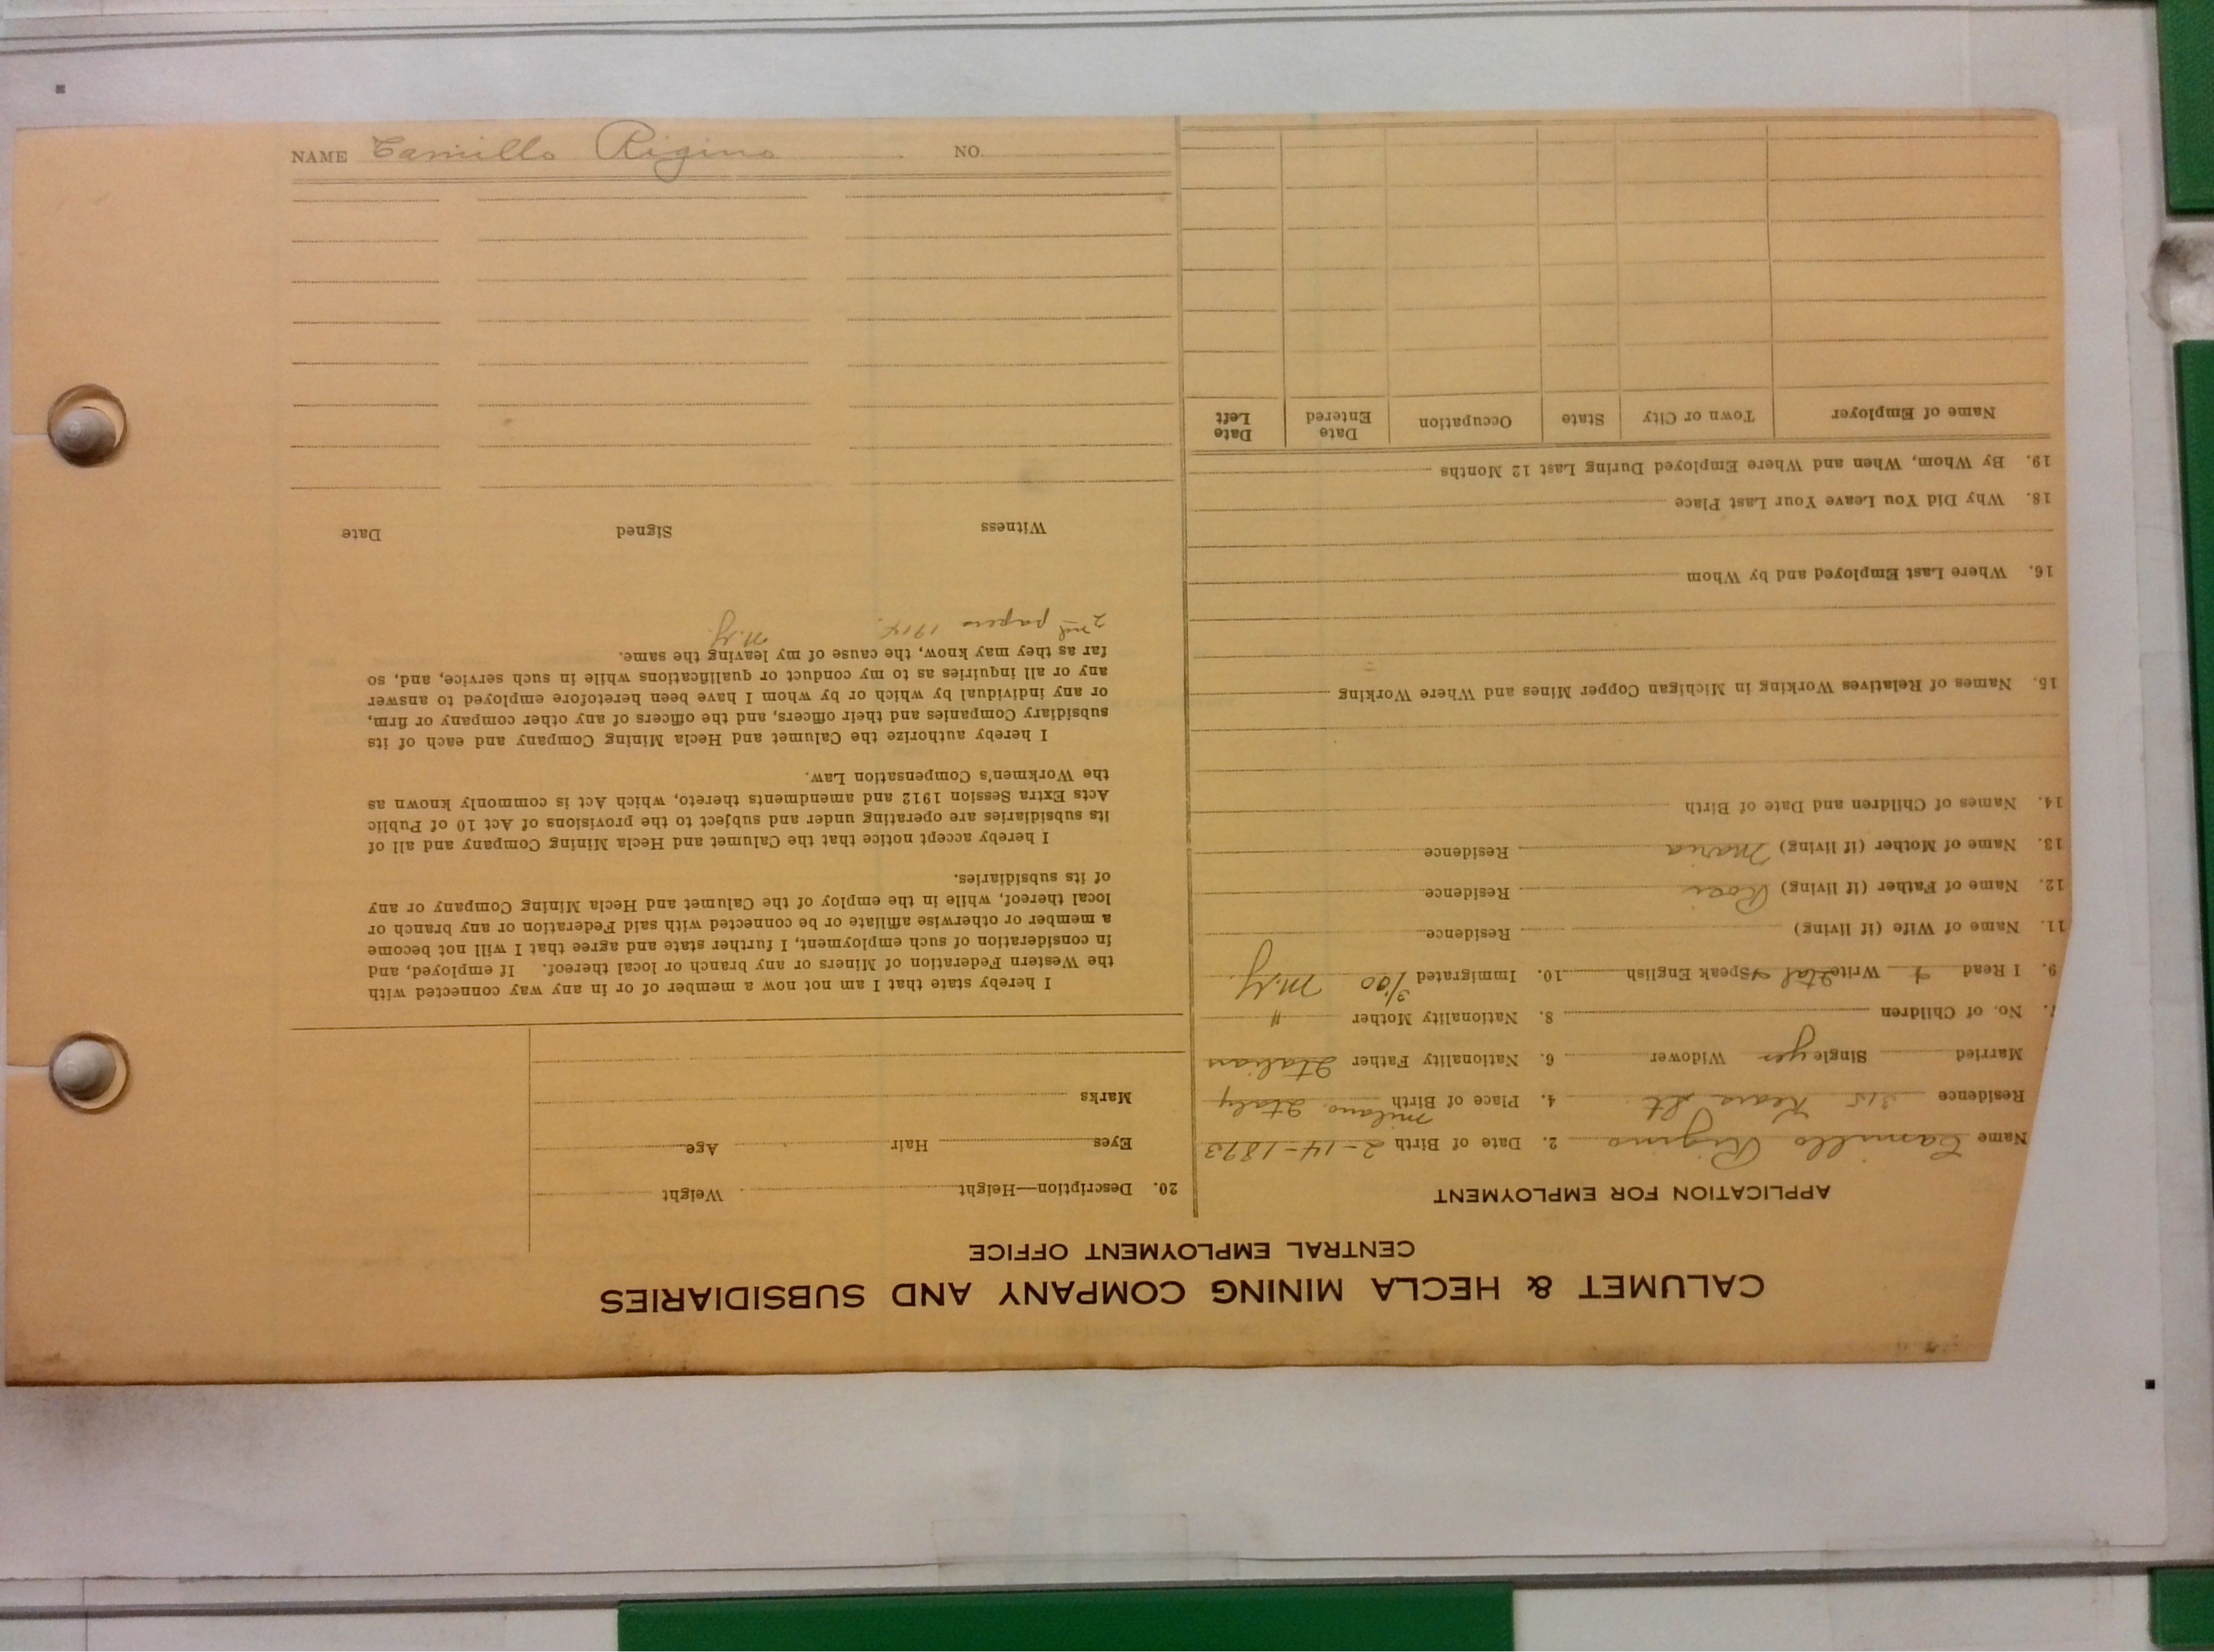 CALUMET & HECLA MINING COMPANY AND SUBSIDIARIES
CENTRAL EMPLOYMENT OFFICE
APPLICATION FOR EMPLOYMENT
Name Camillo Rigino 2. Date of Birth 2-14-1873
Residence 315 Kears St 4. Place of Birth Milano Italy
Married Single yes Widower 6. Nationality Father Italian
7. No. of Children 8. Nationality Mother "
9. I Read Write Ital Speak English 10. Immigrated 3/00 N.Y.
11. Name of Wife (if living) Residence
12. Name of Father (if living) Residence
13. Name of Mother (if living) Maria Residence
14. Names of Children and Date of Birth
15. Names of Relatives Working in Michigan Copper Mines and Where Working
16. Where Last Employed and by Whom
18. Why Did You Leave Your Last Place
19. By Whom, When and Where Employed During Last 12 Months
Name of Employer Town or City State Occupation Date Entered Date Left
20. Description—Height Weight
Eyes Hair Age
Marks
I hereby state that I am not now a member of or in any way connected with
the Western Federation of Miners or any branch or local thereof. If employed, and
in consideration of such employment, I further state and agree that I will not become
a member or otherwise affiliate or be connected with said Federation or any branch or
local thereof, while in the employ of the Calumet and Hecla Mining Company or any
of its subsidiaries.
I hereby accept notice that the Calumet and Hecla Mining Company and all of
its subsidiaries are operating under and subject to the provisions of Act 10 of Public
Acts Extra Session 1912 and amendments thereto, which Act is commonly known as
the Workmen's Compensation Law.
I hereby authorize the Calumet and Hecla Mining Company and each of its
subsidiary Companies and their officers, and the officers of any other company or firm,
or any individual by which or by whom I have been heretofore employed to answer
any or all inquiries as to my conduct or qualifications while in such service, and, so
far as they may know, the cause of my leaving the same.
2nd papers 1914. N.Y.
Witness Signed Date
NAME Camillo Rigino NO.